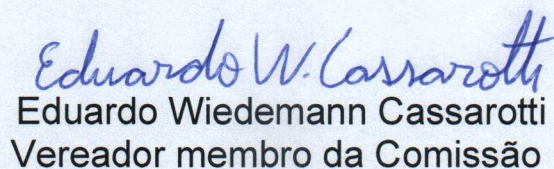 Eduardo W. Cassarotti
Eduardo Wiedemann Cassarotti
Vereador membro da Comissão